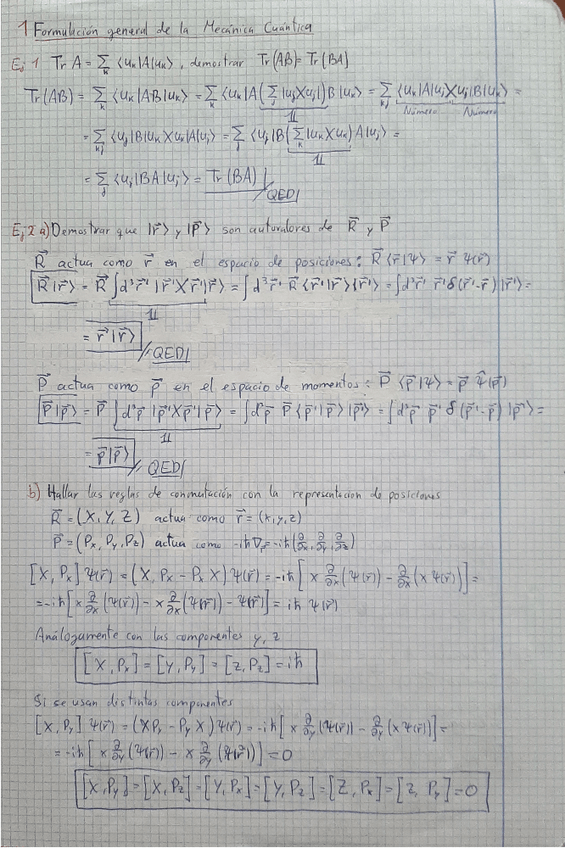 1 Formulación general de la Mecánica Cuántica
Ej 1 Tr A = Σ_k ⟨u_k|A|u_k⟩, demostrar Tr(AB) = Tr(BA)
Tr(AB) = Σ_k ⟨u_k|AB|u_k⟩ = Σ_k ⟨u_k|A(Σ_j |u_j⟩⟨u_j|)B|u_k⟩ = Σ_kj ⟨u_k|A|u_j⟩⟨u_j|B|u_k⟩ =
𝟙 Número Número
= Σ_kj ⟨u_j|B|u_k⟩⟨u_k|A|u_j⟩ = Σ_j ⟨u_j|B(Σ_k |u_k⟩⟨u_k|)A|u_j⟩ =
𝟙
= Σ_j ⟨u_j|BA|u_j⟩ = Tr(BA)
QED
Ej 2 a) Demostrar que |r⃗⟩ y |P⃗⟩ son autovalores de R⃗ y P⃗
R⃗ actua como r⃗ en el espacio de posiciones: R⃗ ⟨r⃗|Ψ⟩ = r⃗ Ψ(r⃗)
R⃗|r⃗⟩ = R⃗ ∫d³r⃗' |r⃗'⟩⟨r⃗'|r⃗⟩ = ∫d³r⃗' R⃗ ⟨r⃗'|r⃗⟩|r⃗'⟩ = ∫d³r⃗' r⃗' δ(r⃗'-r⃗)|r⃗'⟩ =
𝟙
= r⃗|r⃗⟩
QED
P⃗ actua como p⃗ en el espacio de momentos: P⃗ ⟨p⃗|Ψ⟩ = p⃗ Ψ̂(p⃗)
P⃗|p⃗⟩ = P⃗ ∫d³p⃗' |p⃗'⟩⟨p⃗'|p⃗⟩ = ∫d³p⃗' P⃗ ⟨p⃗'|p⃗⟩ |p⃗'⟩ = ∫d³p⃗' p⃗' δ(p⃗'-p⃗) |p⃗'⟩ =
𝟙
= p⃗|p⃗⟩
QED
b) Hallar las reglas de conmutación con la representacion de posiciones
R⃗ = (X, Y, Z) actua como r⃗ = (x, y, z)
P⃗ = (P_x, P_y, P_z) actua como -iħ∇_r = -iħ(∂/∂x, ∂/∂y, ∂/∂z)
[X, P_x] Ψ(r⃗) = (X P_x - P_x X) Ψ(r⃗) = -iħ [x ∂/∂x (Ψ(r⃗)) - ∂/∂x (x Ψ(r⃗))] =
= -iħ [x ∂/∂x (Ψ(r⃗)) - x ∂/∂x (Ψ(r⃗)) - Ψ(r⃗)] = iħ Ψ(r⃗)
Análogamente con las componentes y, z
[X, P_x] = [Y, P_y] = [Z, P_z] = iħ
Si se usan distintas componentes
[X, P_y] Ψ(r⃗) = (X P_y - P_y X) Ψ(r⃗) = -iħ [x ∂/∂y (Ψ(r⃗)) - ∂/∂y (x Ψ(r⃗))] =
= -iħ [x ∂/∂y (Ψ(r⃗)) - x ∂/∂y (Ψ(r⃗))] = 0
[X, P_y] = [X, P_z] = [Y, P_x] = [Y, P_z] = [Z, P_x] = [Z, P_y] = 0